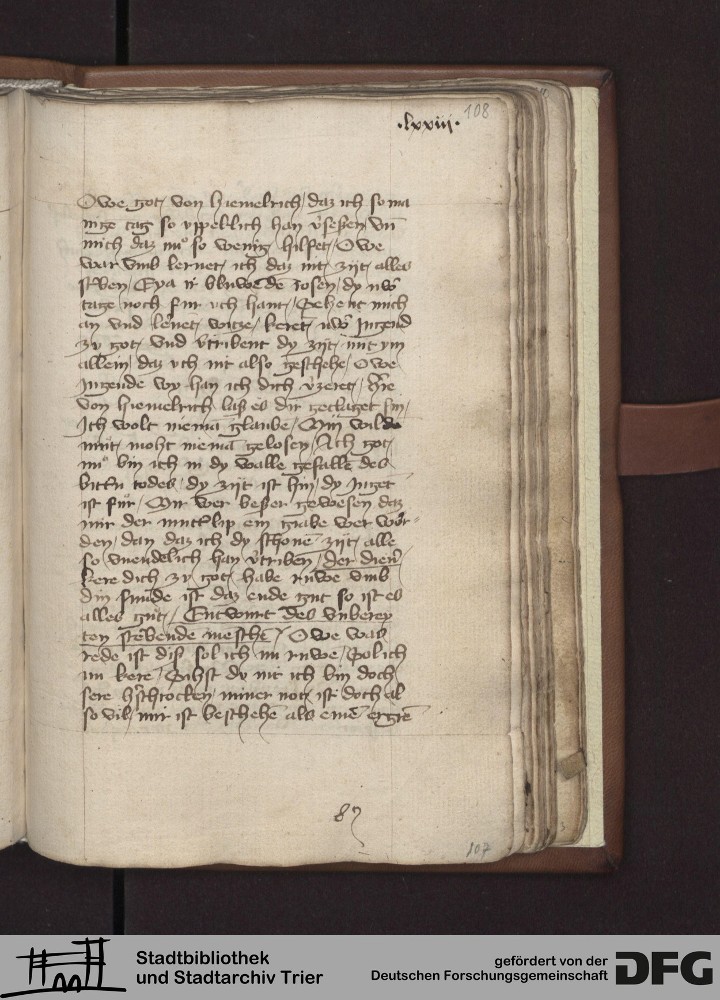 108
·lxxiij·
Owe got von hiemelrich / daz ich so ma
nige tag so vppeklich han v̾seßen / vn̄
mich daz nu° so wenig hilfet / Owe
war vmb lernet ich daz nit zijt alles
st̾ben / Eya ir bluwede rosen / dy uw̾
tage noch fur uch hant / Sehent mich
an vnd le̾net witze / keret uw̾ Jugend
zu got / vnd v̾tribent dy zijt mit ym
allein / daz uch nit also geschehe / Owe
Jngende wy han ich dich v̾zeret / H̾re
von hiemelrich laß es dir geclaget sin /
Jch wolt niema glaube / Min wilde
mut moht niema gelosen / Ach got
nu° bin ich in dy valle gefalle des
bitt̾n todes / dy zijt ist hin / dy Juget
ist fur / Mir wer beßer gewesen daz
mir der mutt̾ lip ein grabe wer wor-
den / dan daz ich dy schone zijt alle
so vnendelich han v̾triben / der dien̾
kere dich zu got / habe ruwe vmb
din sunde ist daz ende gut so ist es
alles gut / Entwurt des vnberey
ten st̾bende mesche / Owe was
rede ist diß sol ich im ruwe / Sol ich
im kere / Sihst du nit ich bin doch
sere h̾schrocken / miner not ist doch al
so vil / mir ist beschehē als eīnē ergre
87
107
Stadtbibliothek
und Stadtarchiv Trier
gefördert von der
Deutschen Forschungsgemeinschaft
DFG